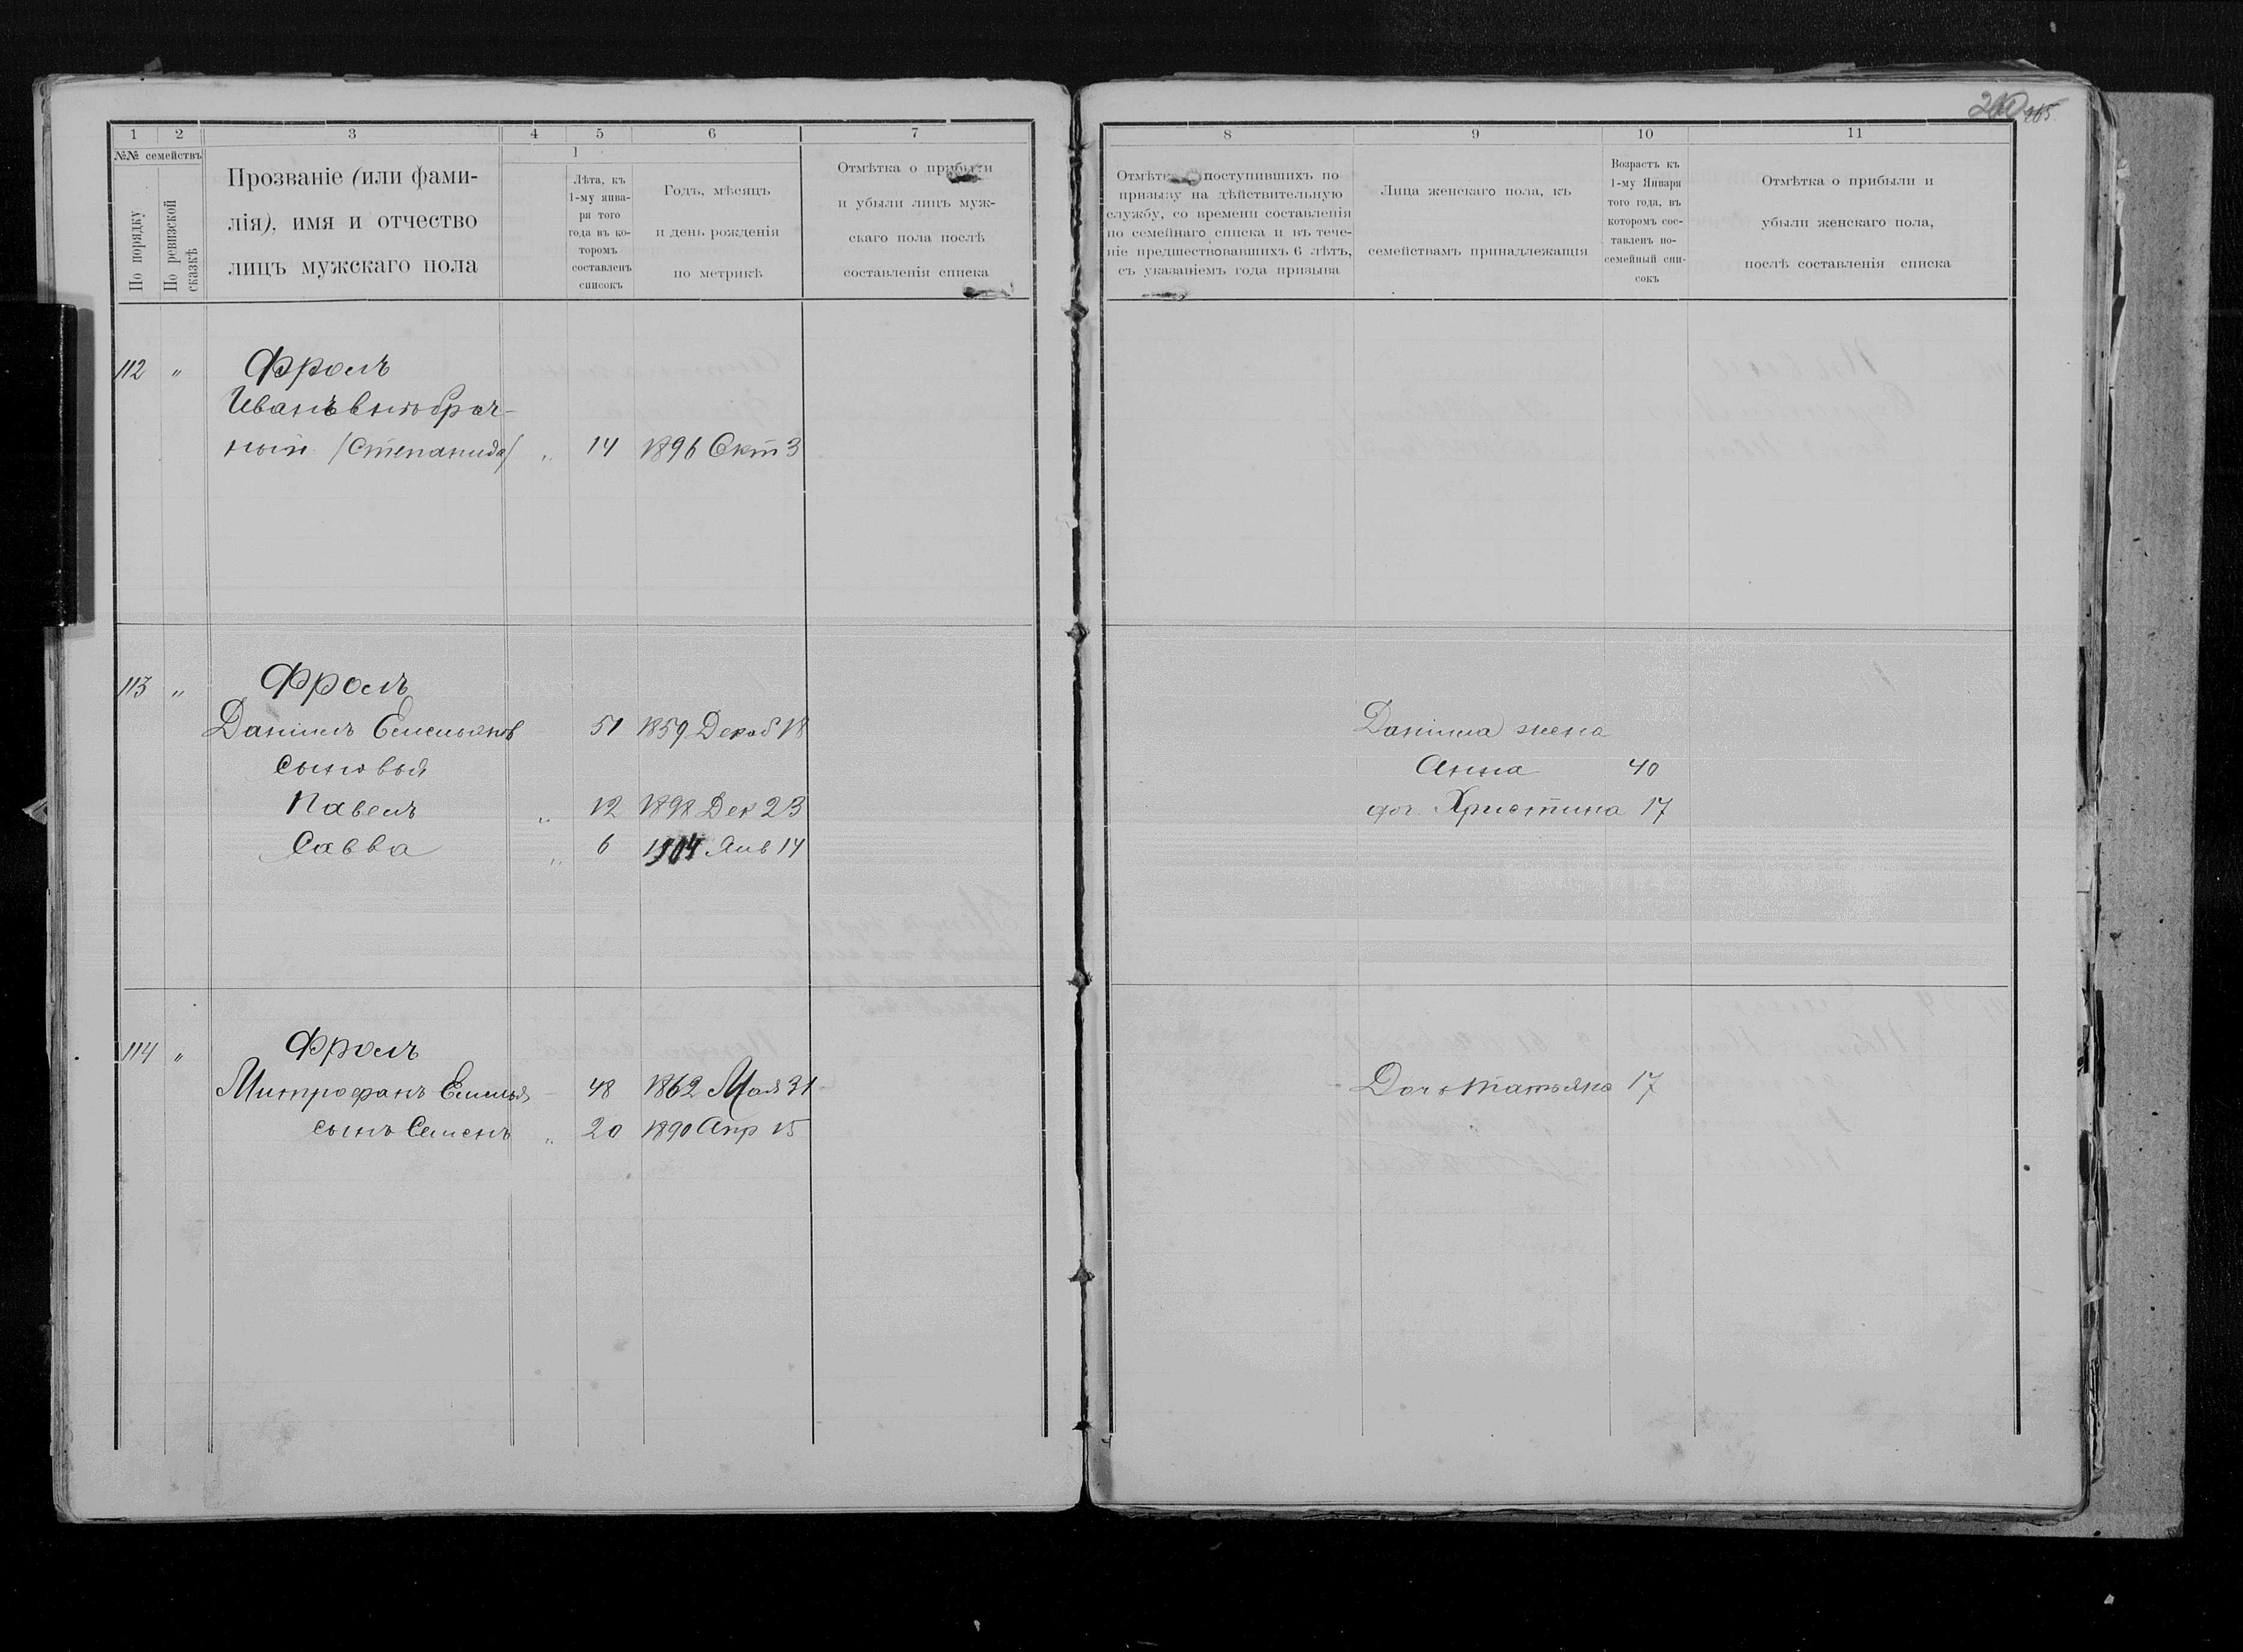 265
1 2 3 4 5 6 7
№№ семействъ
По порядку
По ревизской сказкѣ
Прозваніе (или фами-
лія), имя и отчество
лицъ мужскаго пола
1
Лѣта, къ
1-му янва-
ря того
года въ ко-
торомъ
составленъ
списокъ
Годъ, мѣсяцъ
и день рожденія
по метрикѣ
Отмѣтка о прибыли
и убыли лицъ муж-
скаго пола послѣ
составленія списка
112 " Фролъ
Иванъ внѣбрач-
ный (Степанида) " 14 1896 Окт 3
113 " Фролъ
Даніилъ Емельянов 51 1859 Декаб 18
сыновья
Павелъ " 12 1898 Дек 23
Савва " 6 1904 Янв 14
114 " Фролъ
Митрофанъ Емелья 48 1862 Мая 31
сынъ Семенъ " 20 1890 Апр 15
8 9 10 11
Отмѣтка о поступившихъ по
призыву на дѣйствительную
службу, со времени составленія
по семейнаго списка и въ тече-
ніе предшествовавшихъ 6 лѣтъ,
съ указаніемъ года призыва
Лица женскаго пола, къ
семействамъ принадлежащія
Возрастъ къ
1-му Января
того года, въ
которомъ сос-
тавленъ по-
семейный спи-
сокъ
Отмѣтка о прибыли и
убыли женскаго пола,
послѣ составленія списка
Даніила жена
Анна 40
доч. Христина 17
Дочь Татьяна 17